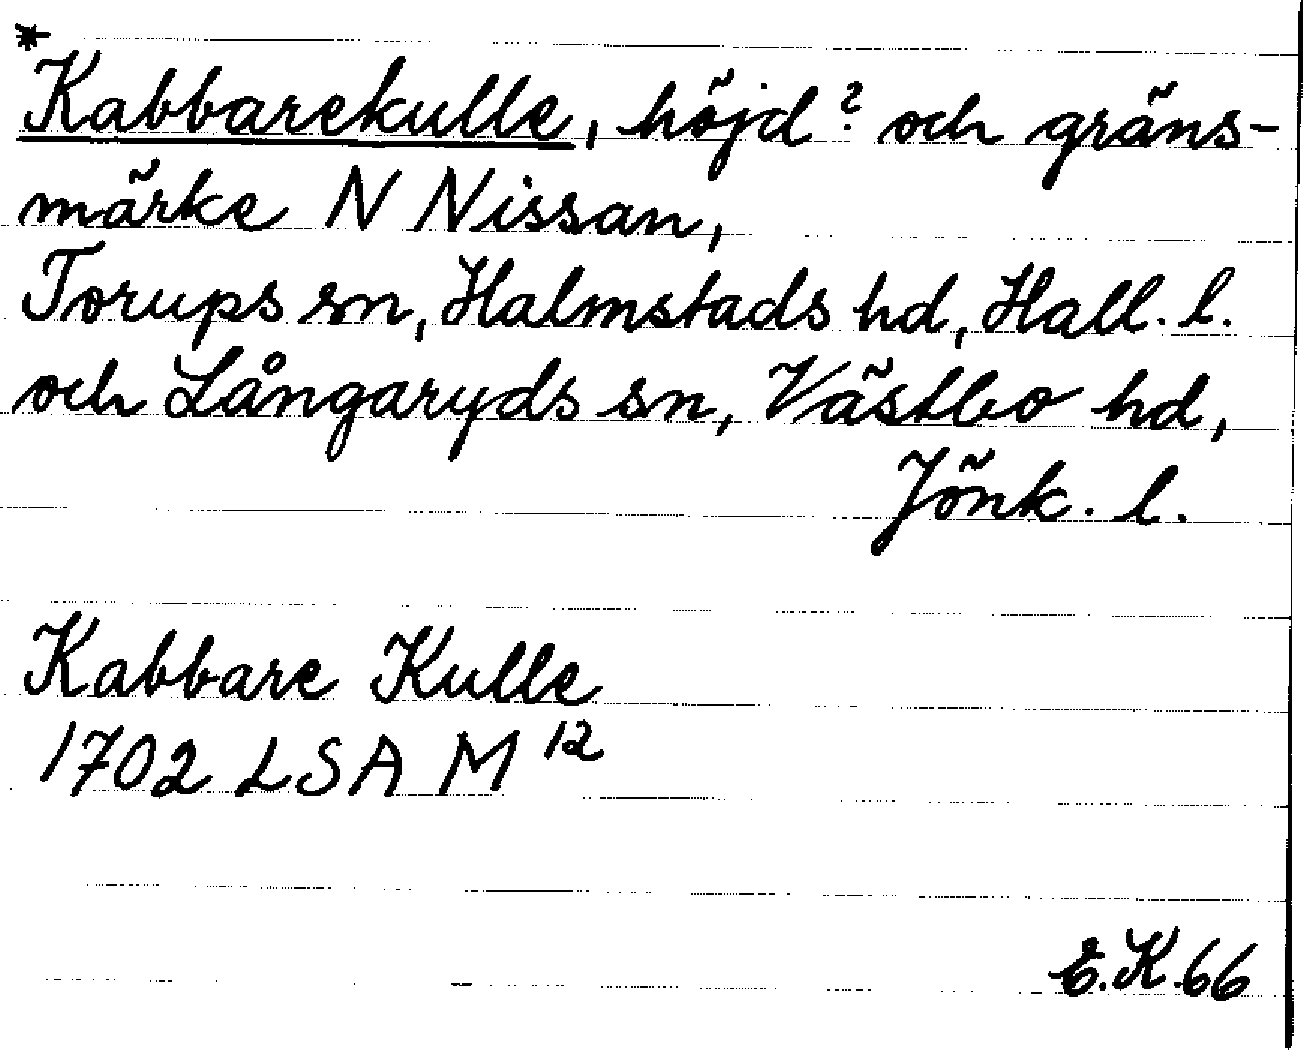 *
Kabbarekulle, höjd? och gräns-
märke N Nissan,
Torups sn, Halmstads hd, Hall. l.
och Långaryds sn, Västbo hd,
Jönk. l.
Kabbare Kulle
1702 LSA M 12
E.K.66